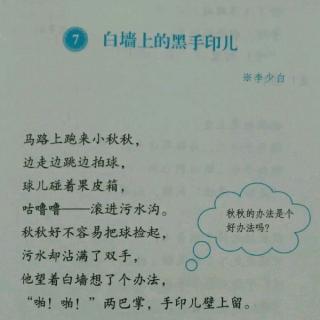 7 白墙上的黑手印儿
※李少白
马路上跑来小秋秋，
边走边跳边拍球，
球儿碰着果皮箱，
咕噜噜——滚进污水沟。
秋秋好不容易把球捡起，
污水却沾满了双手，
他望着白墙想了个办法，
“啪！啪！”两巴掌，手印儿壁上留。
秋秋的办法是个
好办法吗？